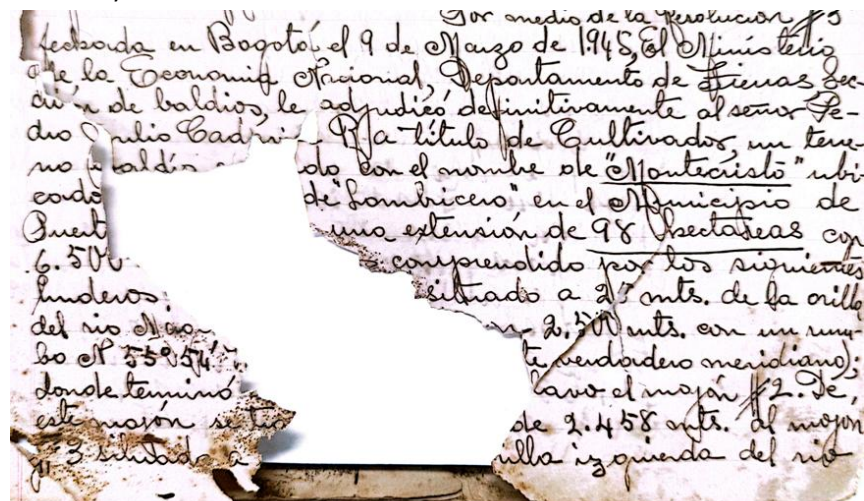 Por medio de la Resolución #3
fechada en Bogotá el 9 de Marzo de 1945, El Ministerio
de la Economia Nacional, Departamento de Tierras, Sec-
ción de baldios, le adjudicó definitivamente al señor Pe-
dro Julio R. a título de Cultivador, un terre-
no baldío do con el nombre de "Montecristo" ubi-
cado de "Lombricero" en el Municipio de
Puert una extensión de 98 hectareas con
6.500 comprendido por los siguientes
linderos situado a 25 mts. de la orilla
del rio 2.500 mts. con un rum-
bo N 55°54' te verdadero meridiano);
donde terminó lavo el mojón #2. De
este mojón se de 2.458 mts. al mojón
#3 situado a illa izquierda del rio